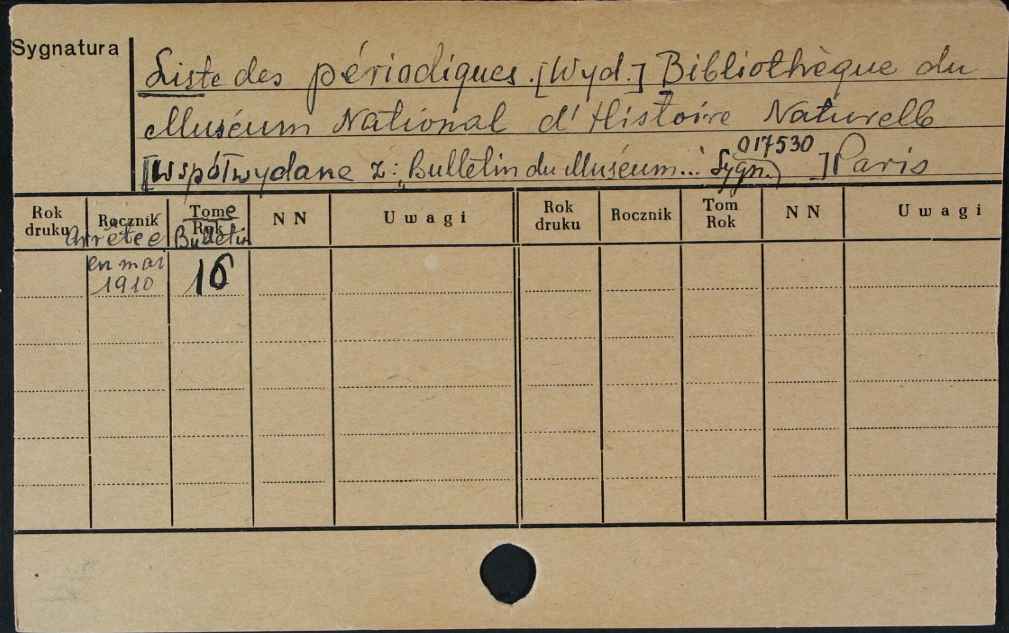 Sygnatura
Liste des périodiques. [Wyd.] Bibliothèque du
Muséum National d'Histoire Naturelle
017530
[Współwydane z: „Bulletin du Muséum..." Sygn.] Paris
Rok druku Rocznik Tome Rok N N Uwagi Rok druku Rocznik Tom Rok N N Uwagi
arretée Bulletin
en mai
1910 16